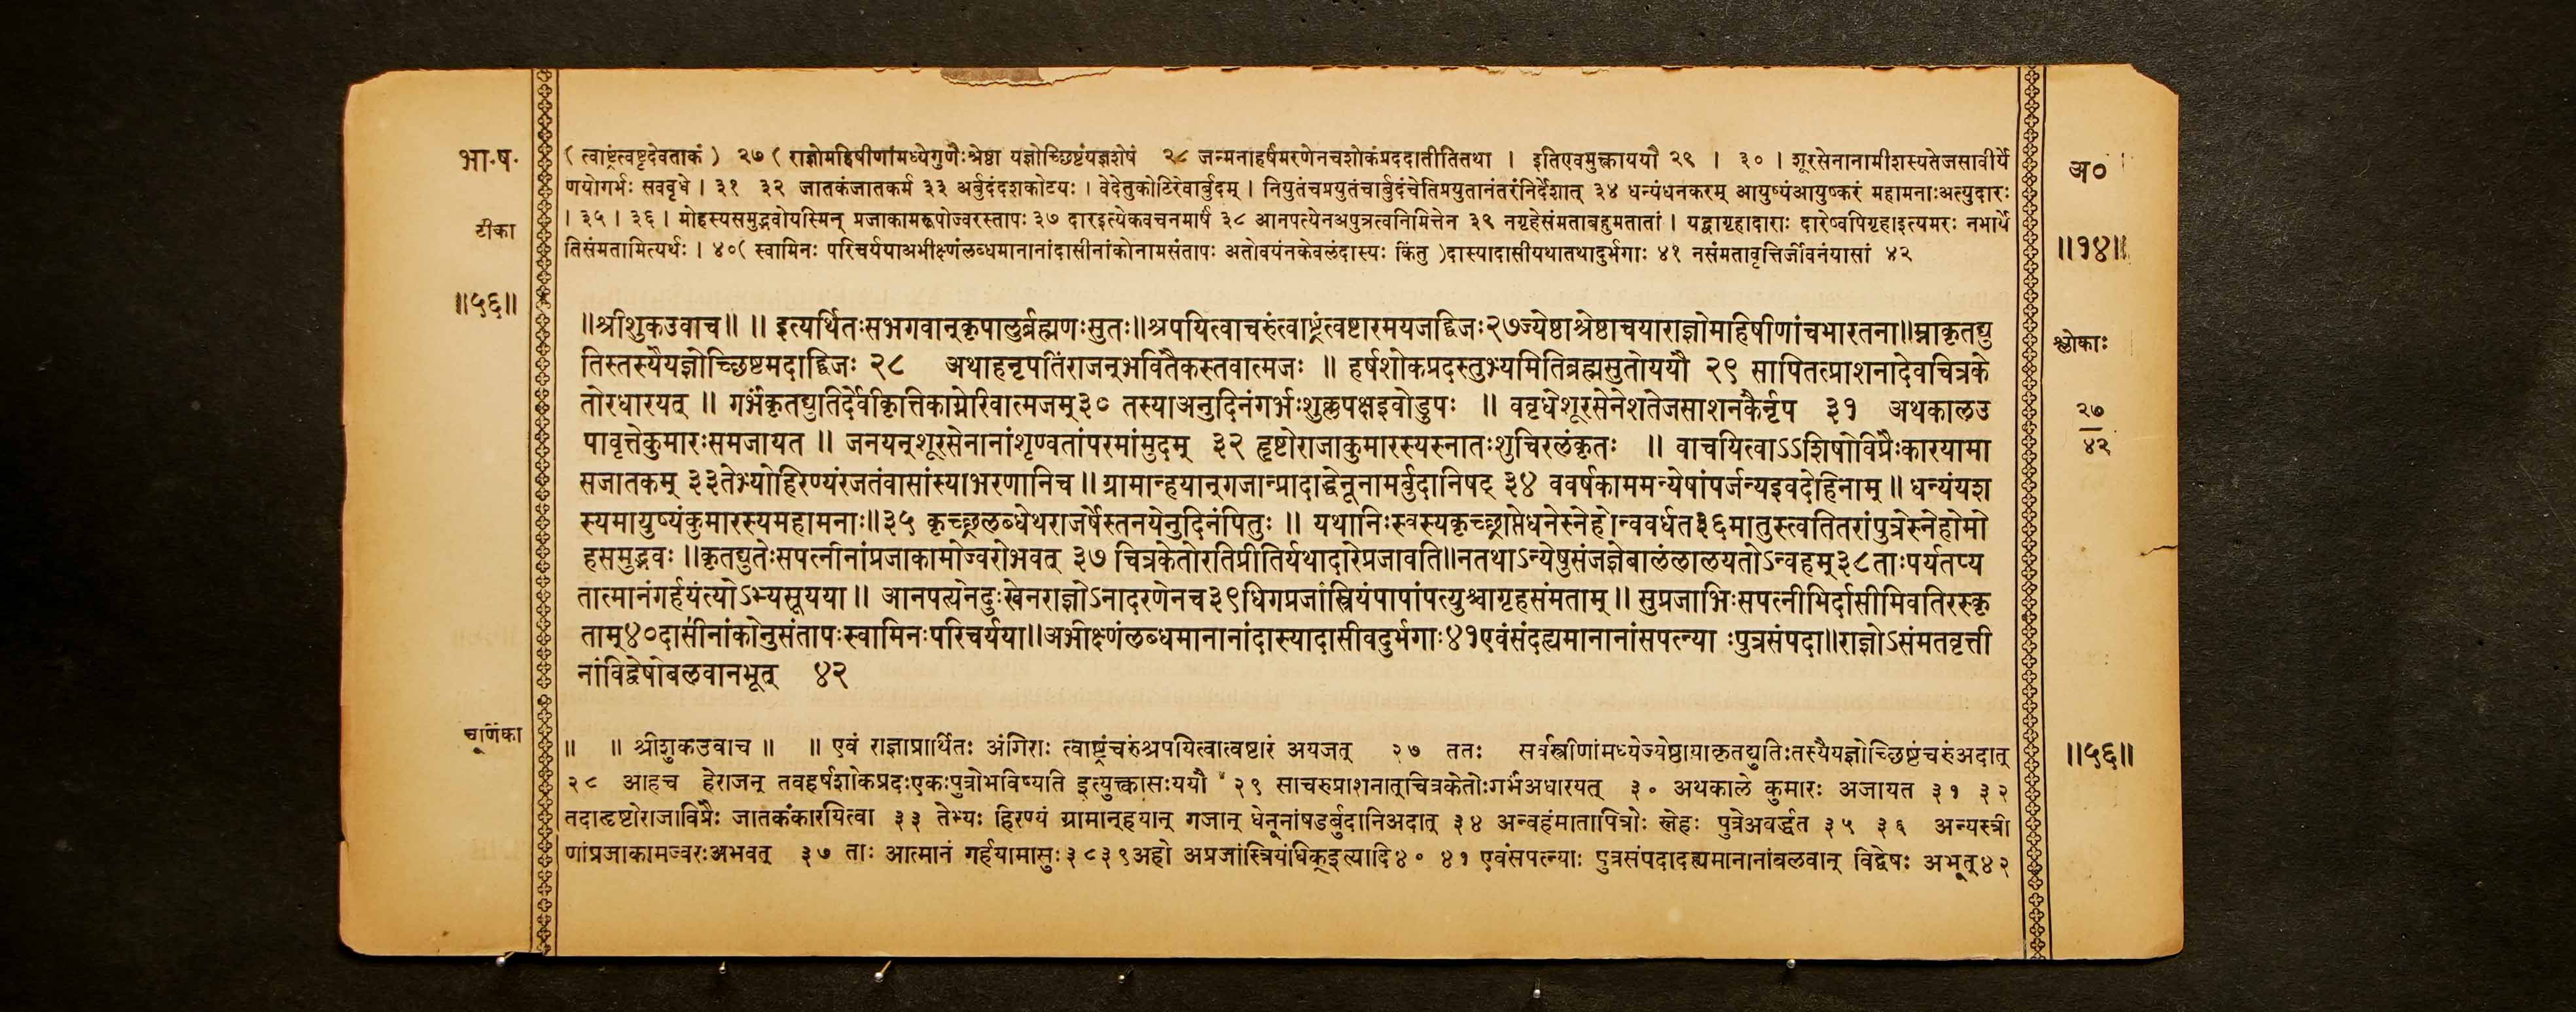 भा॰ष॰
टीका
॥५६॥
चूर्णिका
(त्वाष्ट्रंत्वष्टृदेवताकं) २७ (राज्ञोमहिषीणांमध्येगुणैःश्रेष्ठा यज्ञोच्छिष्टंयज्ञशेषं २८ जन्मनाहर्षंमरणेनचशोकंप्रददातीतितथा । इतिएवमुक्त्वाययौ २९ । ३० । शूरसेनानामीशस्यतेजसावीर्ये
णयोगर्भः सववृधे । ३१ ३२ जातकंजातकर्म ३३ अर्बुदंदशकोटयः । वेदेतुकोटिरेवार्बुदम् । नियुतंचप्रयुतंचार्बुदंचेतिप्रयुतानंतरंनिर्देशात् ३४ धन्यंधनकरम् आयुष्यंआयुष्करं महामनाःअत्युदारः
। ३५ । ३६ । मोहस्यसमुद्भवोयस्मिन् प्रजाकामरूपोज्वरस्तापः ३७ दारइत्येकवचनमार्षं ३८ आनपत्येनअपुत्रत्वनिमित्तेन ३९ नगृहेसंमताबहुमतातां । यद्वागृहादाराः दारेष्वपिगृहाइत्यमरः नभार्ये
तिसंमतामित्यर्थः । ४०( स्वामिनः परिचर्ययाअभीक्ष्णंलब्धमानानांदासीनांकोनामसंतापः अतोवयंनकेवलंदास्यः किंतु )दास्यादासीयथातथादुर्भगाः ४१ नसंमतावृत्तिर्जीवनंयासां ४२
॥श्रीशुकउवाच॥ ॥ इत्यर्थितःसभगवान्कृपालुर्ब्रह्मणःसुतः॥श्रपयित्वाचरुंत्वाष्ट्रंत्वष्टारमयजद्विजः२७ज्येष्ठाश्रेष्ठाचयाराज्ञोमहिषीणांचभारतना॥म्नाकृतद्यु
तिस्तस्यैयज्ञोच्छिष्टमदाद्विजः २८ अथाहनृपतिंराजन्भवितैकस्तवात्मजः ॥ हर्षशोकप्रदस्तुभ्यमितिब्रह्मसुतोययौ २९ सापितत्प्राशनादेवचित्रके
तोरधारयत् ॥ गर्भंकृतद्युतिर्देवीकृत्तिकाग्नेरिवात्मजम्३० तस्याअनुदिनंगर्भःशुक्लपक्षइवोडुपः ॥ ववृधेशूरसेनेशतेजसाशनकैर्नृप ३१ अथकालउ
पावृत्तेकुमारःसमजायत ॥ जनयन्शूरसेनानांशृण्वतांपरमांमुदम् ३२ हृष्टोराजाकुमारस्यस्नातःशुचिरलंकृतः ॥ वाचयित्वाऽऽशिषोविप्रैःकारयामा
सजातकम् ३३तेभ्योहिरण्यंरजतंवासांस्याभरणानिच॥ग्रामान्हयान्गजान्प्रादाद्धेनूनामर्बुदानिषट् ३४ ववर्षकाममन्येषांपर्जन्यइवदेहिनाम्॥धन्यंयश
स्यमायुष्यंकुमारस्यमहामनाः॥३५ कृच्छ्रलब्धेथराजर्षेस्तनयेनुदिनंपितुः ॥ यथानिःस्वस्यकृच्छ्राप्तेधनेस्नेहोन्ववर्धत३६मातुस्त्वतितरांपुत्रेस्नेहोमो
हसमुद्भवः ॥कृतद्युतेःसपत्नीनांप्रजाकामोज्वरोभवत् ३७ चित्रकेतोरतिप्रीतिर्यथादारेप्रजावति॥नतथाऽन्येषुसंजज्ञेबालंलालयतोऽन्वहम्३८ताःपर्यतप्य
तात्मानंगर्हयंत्योऽभ्यसूयया॥ आनपत्येनदुःखेनराज्ञोऽनादरणेनच३९धिगप्रजांस्त्रियंपापांपत्युश्चागृहसंमताम्॥सुप्रजाभिःसपत्नीभिर्दासीमिवतिरस्कृ
ताम्४०दासीनांकोनुसंतापःस्वामिनःपरिचर्यया॥अभीक्ष्णंलब्धमानानांदास्यादासीवदुर्भगाः४१एवंसंदह्यमानानांसपत्न्या ःपुत्रसंपदा॥राज्ञोऽसंमतवृत्ती
नांविद्वेषोबलवानभूत् ४२
॥ ॥ श्रीशुकउवाच ॥ ॥ एवं राज्ञाप्रार्थितः अंगिराः त्वाष्ट्रंचरुंश्रपयित्वात्वष्टारं अयजत् २७ ततः सर्वस्त्रीणांमध्येज्येष्ठायाकृतद्युतिःतस्यैयज्ञोच्छिष्टंचरुंअदात्
२८ आहच हेराजन् तवहर्षशोकप्रदःएकःपुत्रोभविष्यति इत्युक्त्वासःययौ २९ साचरुप्राशनात्चित्रकेतोःगर्भंअधारयत् ३० अथकाले कुमारः अजायत ३१ ३२
तदाहृष्टोराजाविप्रैः जातकंकारयित्वा ३३ तेभ्यः हिरण्यं ग्रामान्हयान् गजान् धेनूनांषडर्बुदानिअदात् ३४ अन्वहंमातापित्रोः स्नेहः पुत्रेअवर्द्धत ३५ ३६ अन्यस्त्री
णांप्रजाकामज्वरःअभवत् ३७ ताः आत्मानं गर्हयामासुः३८३९अहो अप्रजांस्त्रियंधिक्इत्यादि४० ४१ एवंसपत्न्याः पुत्रसंपदादह्यमानानांबलवान् विद्वेषः अभूत्४२
अ०
॥१४॥
श्लोकाः
२७
४२
॥५६॥